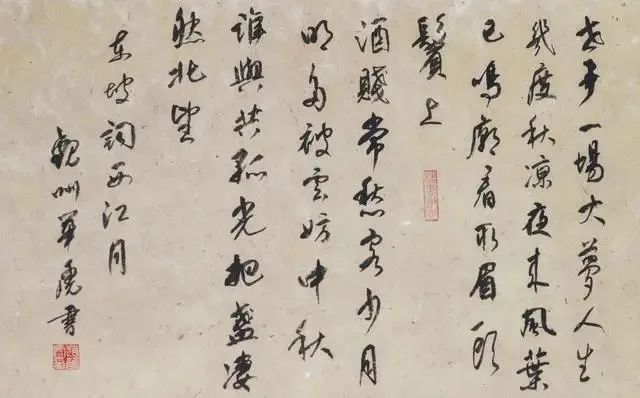 世事一場大夢人生
幾度秋涼夜來風葉
已鳴廊看取眉頭
鬢上
酒賤常愁客少月
明多被云妨中秋
誰與共孤光把盞淒
然北望
東坡詞西江月
州書